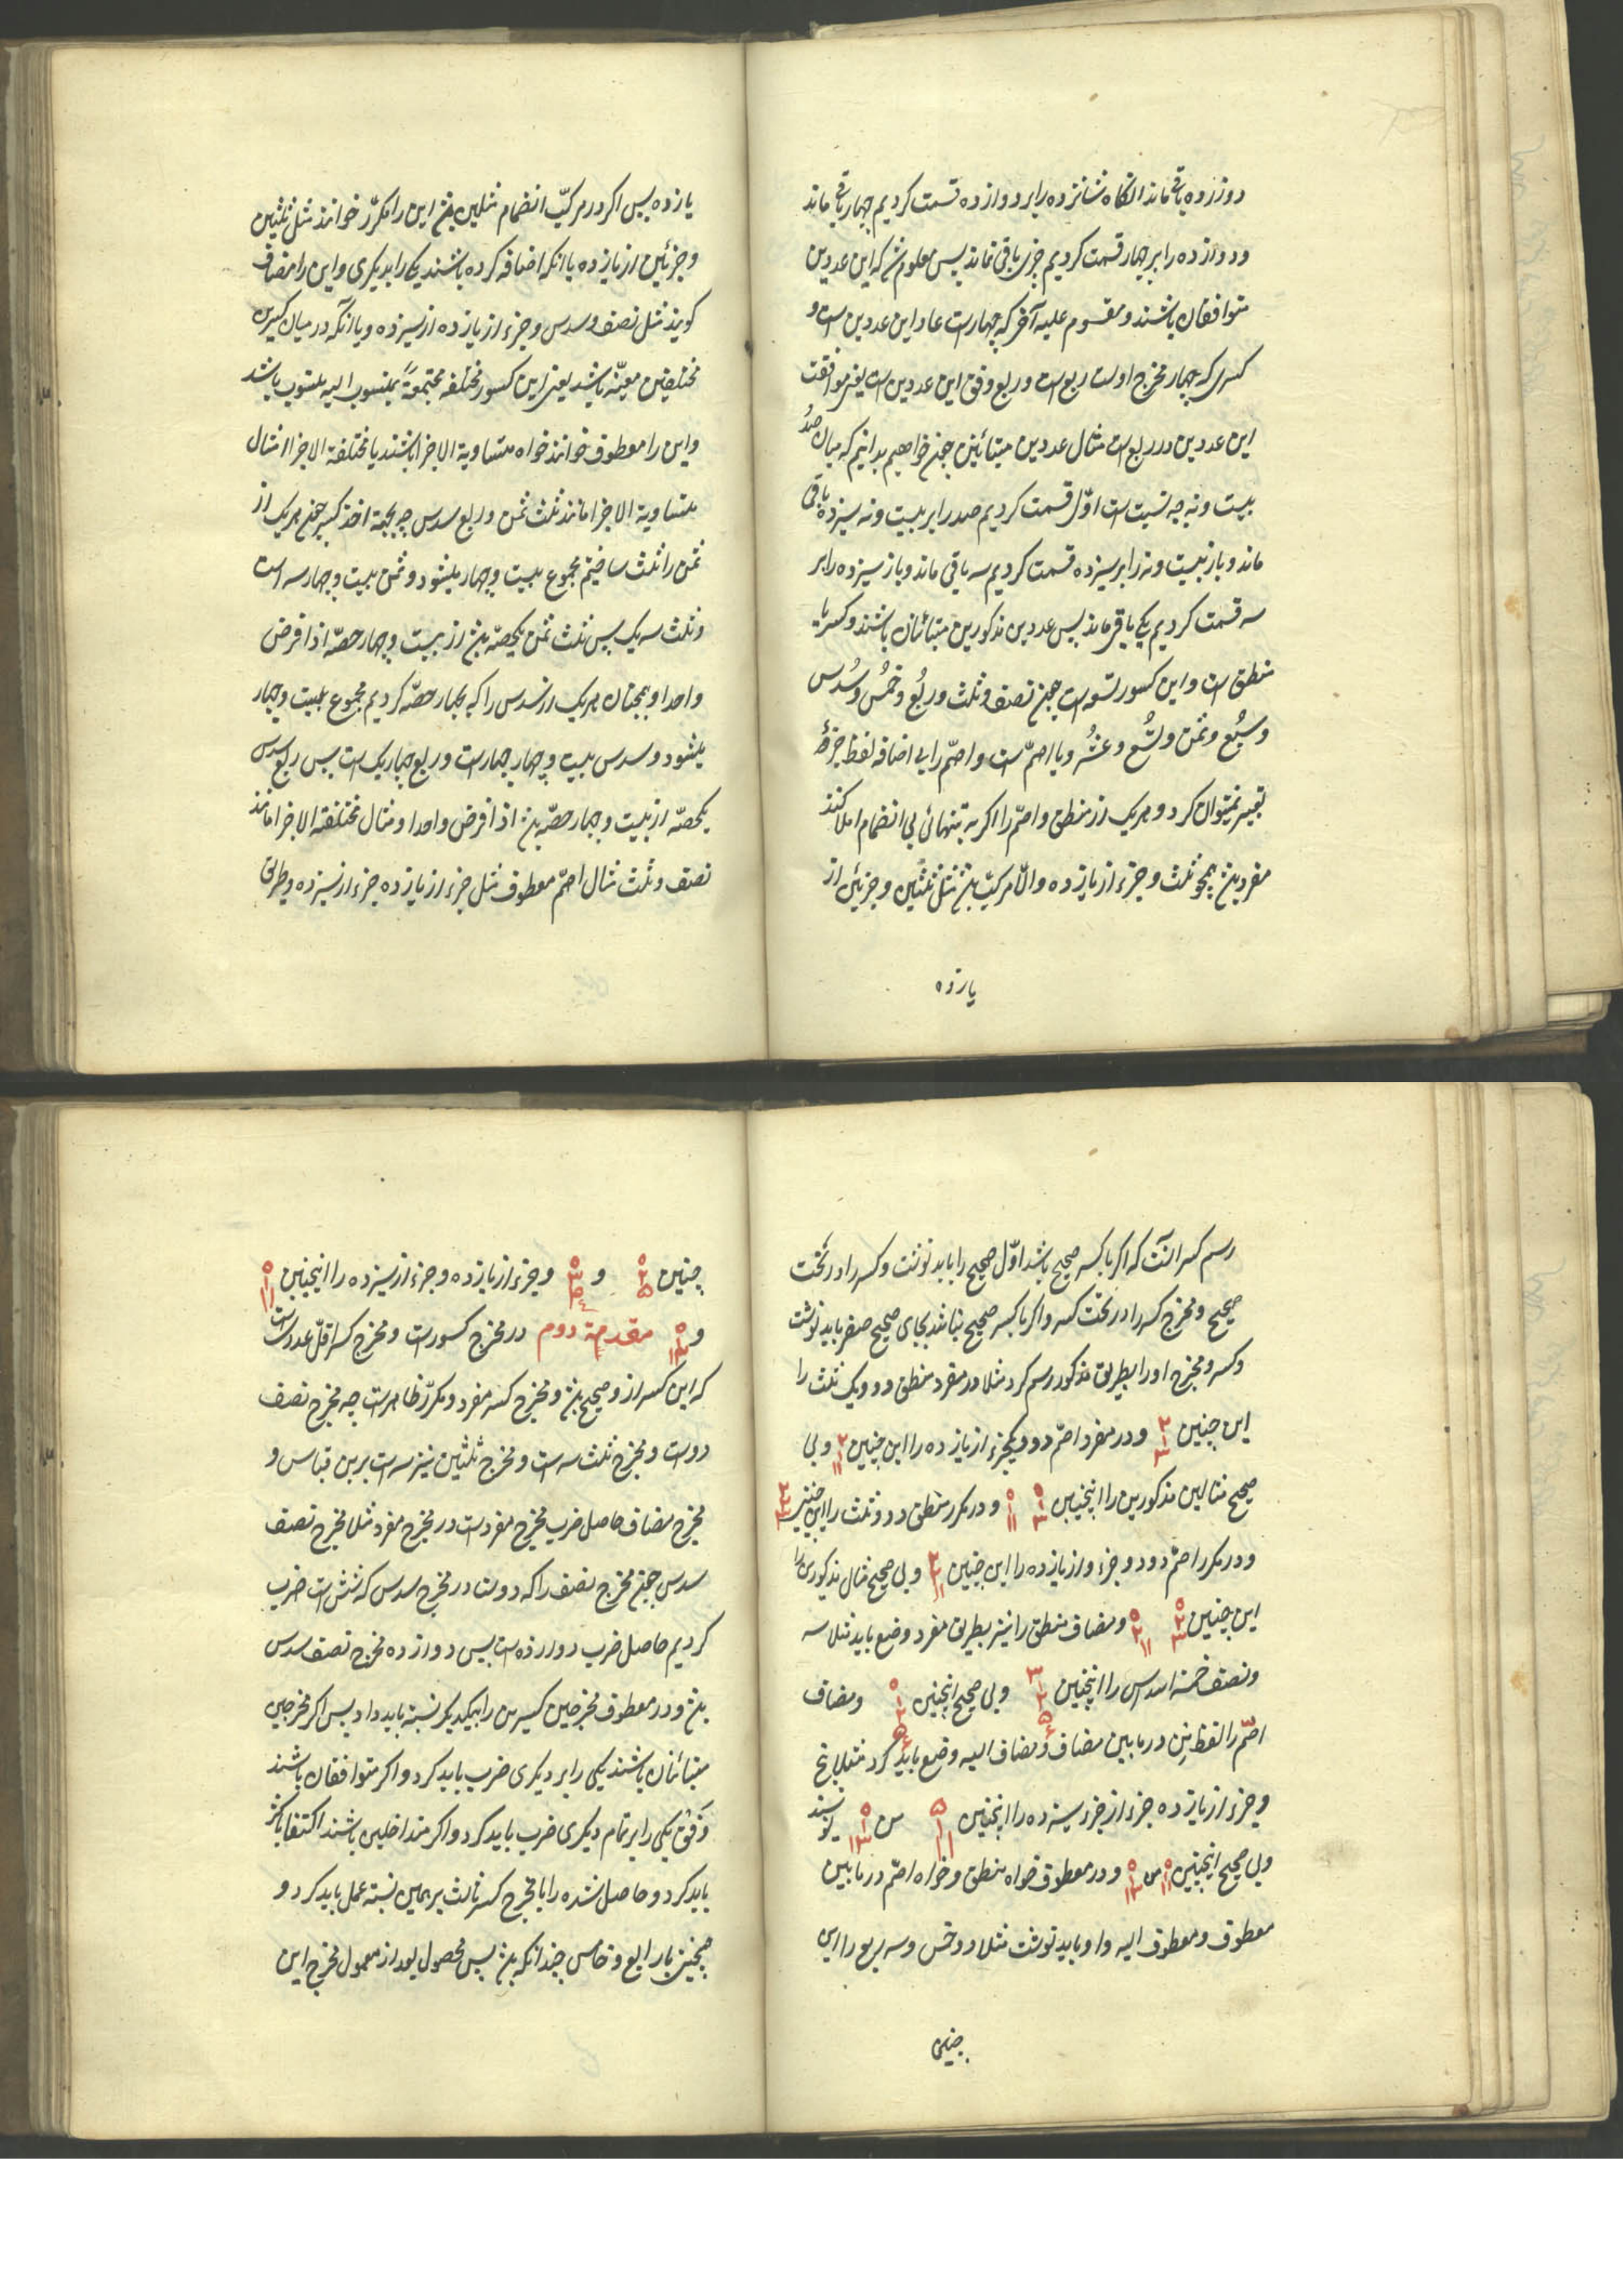 دوازده باقی ماند انکاه شانزده را بر دوازده قسمت کردیم چهار باقی ماند
ودوازده را بر چهار قسمت کردیم چیزی باقی نماند پس معلوم شد که این عددین
متوافقان باشند و مقسوم علیه آخر که چهارست عاد این عددین است و
کسری که چهار مخرج اوست ربع است و ربع وفق این عددین است یعنی موافقت
این عددین در ربع است مثال عددین متباینین چون خواهیم بدانیم که میان صد
بیست و نه چه نسبت است اوّل قسمت کردیم صد را بر بیست و نه سیزده باقی
ماند و باز بیست و نه را بر سیزده قسمت کردیم سه باقی ماند و باز سیزده را بر
سه قسمت کردیم یکی باقی ماند پس عددین مذکورین متباینان باشند و کسر یا
منطق است و این کسور تسعه است چون نصف و ثلث و ربُع و خمُس و سُدس
و سبُع و ثمن و تُسُع و عشُر و یا اصمّ است و اصمّ را بی اضافه لفظ جزء
تعبیر نمیتوان کرد و هر یک از منطق و اصمّ را اکر به تنهائی بی انضمام املا کنند
مفرد بود همچو ثلث و جزء از یازده والّا مرکبّ بود مثل ثلثین و جزئین از
یازده
یازده پس اکر در مرکبّ انضمام مثلین بود این را مکرّر خوانند مثل ثلثین
و جزئین از یازده یا انکه اضافه کرده باشند یکی را بدیکری و این را مضاف
کویند مثل نصف سدس و جزء از یازده از سیزده و یا آنکه در میان کسرین
مختلفین معیّنه باشد یعنی این کسور مختلفه مجتمعةً بمنسوب الیه منسوب باشد
و این را معطوف خوانند خواه متساویة الاجزا باشند یا مختلفة الاجزا مثال
متساویة الاجزا مانند ثلث ثمن و ربع سدس چه بجهة اخذ کسر چون هر یک از
ثمن را ثلث ساختیم مجموع بیست و چهار میشود و ثمن بیست و چهار سه است
و ثلث سه یک پس ثلث ثمن یکحصّه بود از بیست و چهار حصّه اذا فرض
واحدا و همچنان هر یک از سدس را که بچهار حصّه کردیم مجموع بیست و چهار
میشود و سدس بیست و چهار چهارست و ربع چهار یک است پس ربع سدس
یکحصّه از بیست و چهار حصّه بود اذا فرض واحدا و مثال مختلفة الاجزا مانند
نصف و ثلث مثال اصمّ معطوف مثل جزء از یازده جزء از سیزده و طریق
رسم کسر آنست که اکر با کسر صحیح باشد اوّل صحیح را باید نوشت و کسر را در تحت
صحیح و مخرج کسر را در تحت کسر و اکر با کسر صحیح نباشد بجای صحیح صفر باید نوشت
و کسر و مخرج او را بطریق مذکور رسم کرد مثلا در مفرد منطق دو و یک ثلث را
این چنین ۲ ۱ ۳ و در مفرد اصمّ دو و یکجزء از یازده را این چنین ۲ ۱ ۱۱ و بی
صحیح مثالین مذکورین را اینچنین ۰ ۱ ۳ ۰ ۱ ۱۱ و در مکرر منطق دو و دو ثلث را این چنین ۲ ۲ ۳
و در مکرر اصمّ دو و دو جزء از یازده را این چنین ۲ ۲ ۱۱ و بی صحیح مثال مذکورین را
این چنین ۰ ۲ ۳ ۰ ۲ ۱۱ و مضاف منطق را نیز بطریق مفرد وضع باید مثلا سه
و نصف خمسة اسداس را اینچنین ۳ ۱ ۲ ۵ ۶ و بی صحیح اینچنین ۰ ۱ ۲ ۵ ۶ و مضاف
اصمّ را لفظ مِن در ما بین مضاف و مضاف الیه وضع باید کرد مثلا پنج
و جزء از یازده جزء از جزء سیزده را اینچنین ۵ ۱ ۱۱ من ۰ ۱ ۱۳ نویسند
و بی صحیح اینچنین ۰ ۱ ۱۱ من ۰ ۱ ۱۳ و در معطوف خواه منطق و خواه اصمّ در ما بین
معطوف و معطوف الیه واو باید نوشت مثلا دو خمس و سه ربع را این
چنین
چنین ۰ ۲ ۵ و ۰ ۳ ۴ و جزء از یازده و جزء از سیزده را اینچنین ۰ ۱ ۱۱
و ۰ ۱ ۱۳ مقدمة دوم در مخرج کسورست و مخرج کسر اقلّ عددیست
که این کسر از و صحیح بود و مخرج کسر مفرد و مکرّر ظاهرست چه مخرج نصف
دوست و مخرج ثلث سه است و مخرج ثلثین نیز سه است برین قیاس و
مخرج مضاف حاصل ضرب مخرج مفردست در مخرج مفرد مثلا مخرج نصف
سدس چون مخرج نصف را که دوست در مخرج سدس که شش است ضرب
کردیم حاصل ضرب دوازده است پس دوازده مخرج نصف سدس
بود و در معطوف مخرجین کسرین را بهمیدیکر نسبة باید داد پس اکر مخرجین
متباینان باشند یکی را بر دیکری ضرب باید کرد و اکر متوافقان باشند
وَفق یکی را بر تمام دیکری ضرب باید کرد و اکر متداخلین باشند اکتفا باکثر
باید کرد و حاصل شده را با مخرج کسر ثالث بر همین نسبة عمل باید کرد و
همچنین با رابع و خامس چندانکه بود پس محصول بعد از معمول مخرج این